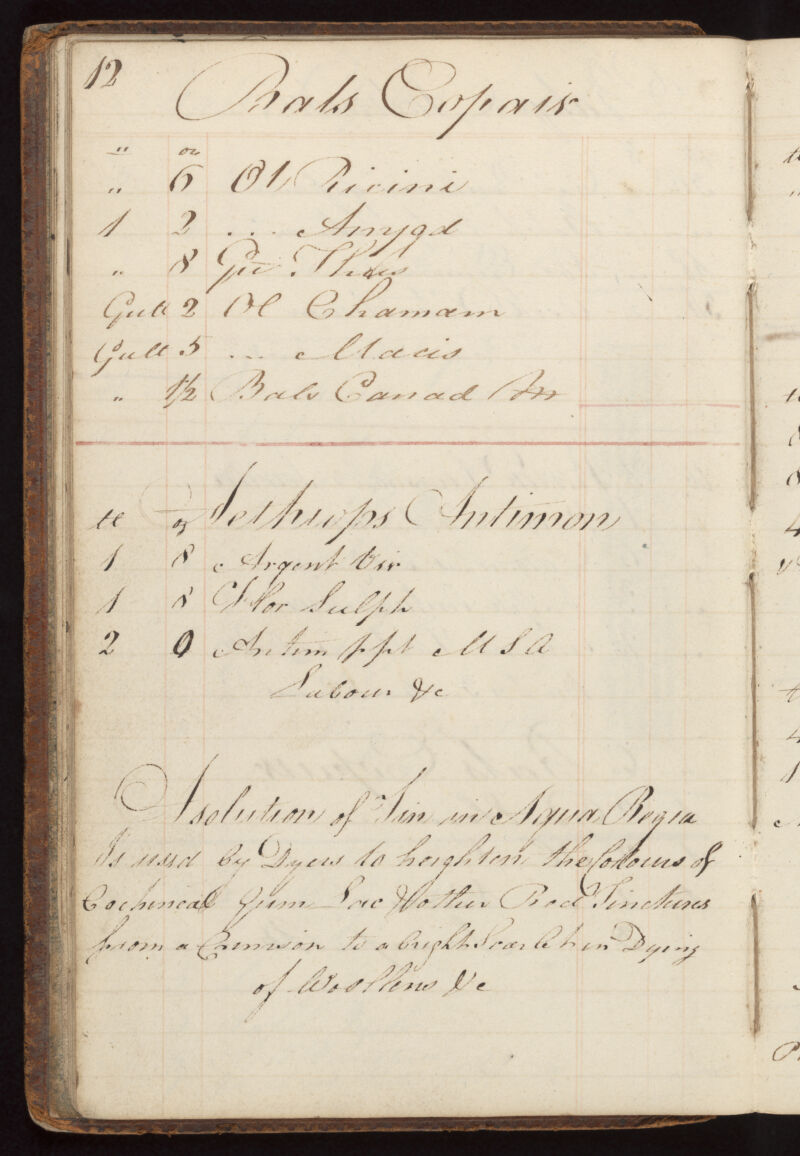 12
Bals Copaiv
" oz
" 6 Ol Ricini
1 2 ... Amygd
" 8 Gu Thus
Gutt 2 Ol Chamam
Gutt 5 ... Macis
" 1/2 Bals Canad M
lb oz Aethiops Antimon
1 8 Argent Viv
1 8 Flor Sulph
2 0 Antim ppt M S A
Labour &c
A solution of Tin in Aqua Regia
Is used by Dyers to heighten the Colours of
Cochineal Gum Lac & other Red Tinctures
from a Crimson to a bright Scarlet in Dying
of Woollens &c